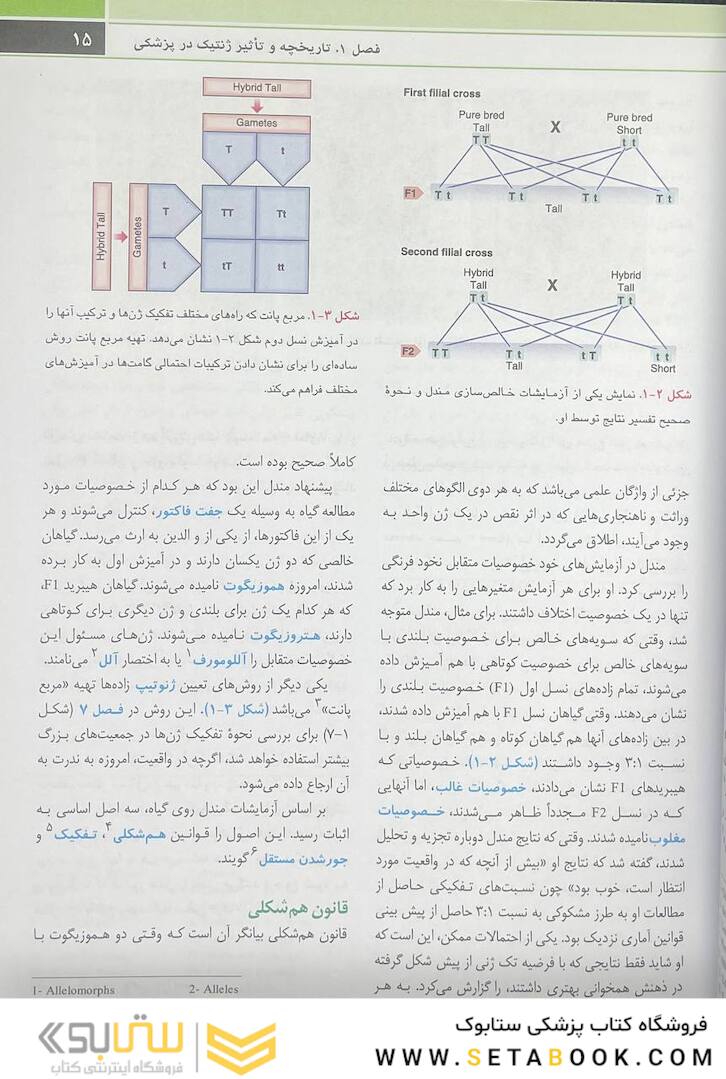 فصل ۱. تاریخچه و تأثیر ژنتیک در پزشکی
۱۵
First filial cross
Pure bred
Tall
T T
X
Pure bred
Short
t t
F1
T t
T t
T t
T t
Tall
Second filial cross
Hybrid
Tall
T t
X
Hybrid
Tall
T t
F2
T T
T t
t T
t t
Tall
Short
شکل ۲-۱. نمایش یکی از آزمایشات خالص‌سازی مندل و نحوهٔ
صحیح تفسیر نتایج توسط او.
جزئی از واژگان علمی می‌باشد که به هر دوی الگوهای مختلف
وراثت و ناهنجاری‌هایی که در اثر نقص در یک ژن واحد به
وجود می‌آیند، اطلاق می‌گردد.
مندل در آزمایش‌های خود خصوصیات متقابل نخود فرنگی
را بررسی کرد. او برای هر آزمایش متغیرهایی را به کار برد که
تنها در یک خصوصیت اختلاف داشتند. برای مثال، مندل متوجه
شد، وقتی که سویه‌های خالص برای خصوصیت بلندی با
سویه‌های خالص برای خصوصیت کوتاهی با هم آمیزش داده
می‌شوند، تمام زاده‌های نسل اول (F1) خصوصیت بلندی را
نشان می‌دهند. وقتی گیاهان نسل F1 با هم آمیزش داده شدند،
در بین زاده‌های آنها هم گیاهان کوتاه و هم گیاهان بلند و با
نسبت ۳:۱ وجود داشتند (شکل ۲-۱). خصوصیاتی که
هیبریدهای F1 نشان می‌دادند، خصوصیات غالب، اما آنهایی
که در نسل F2 مجدداً ظاهر می‌شدند، خصوصیات
مغلوب نامیده شدند. وقتی که نتایج مندل دوباره تجزیه و تحلیل
شدند، گفته شد که نتایج او «بیش از آنچه که در واقعیت مورد
انتظار است، خوب بود» چون نسبت‌های تفکیکی حاصل از
مطالعات او به طرز مشکوکی به نسبت ۳:۱ حاصل از پیش بینی
قوانین آماری نزدیک بود. یکی از احتمالات ممکن، این است که
او شاید فقط نتایجی که با فرضیه تک ژنی از پیش شکل گرفته
در ذهنش همخوانی بهتری داشتند، را گزارش می‌کرد. به هر
Hybrid Tall
Gametes
T
t
Hybrid Tall
Gametes
T
TT
Tt
t
tT
tt
شکل ۳-۱. مربع پانت که راه‌های مختلف تفکیک ژن‌ها و ترکیب آنها را
در آمیزش نسل دوم شکل ۲-۱ نشان می‌دهد. تهیه مربع پانت روش
ساده‌ای را برای نشان دادن ترکیبات احتمالی گامت‌ها در آمیزش‌های
مختلف فراهم می‌کند.
کاملاً صحیح بوده است.
پیشنهاد مندل این بود که هر کدام از خصوصیات مورد
مطالعه گیاه به وسیله یک جفت فاکتور، کنترل می‌شوند و هر
یک از این فاکتورها، از یکی از و الدین به ارث می‌رسد. گیاهان
خالصی که دو ژن یکسان دارند و در آمیزش اول به کار برده
شدند، امروزه هموزیگوت نامیده می‌شوند. گیاهان هیبرید F1،
که هر کدام یک ژن برای بلندی و ژن دیگری برای کوتاهی
دارند، هتروزیگوت نامیده می‌شوند. ژن‌های مسئول این
خصوصیات متقابل را آللومورف۱ یا به اختصار آلل۲ می‌نامند.
یکی دیگر از روش‌های تعیین ژنوتیپ زاده‌ها تهیه «مربع
پانت»۳ می‌باشد (شکل ۳-۱). این روش در فصل ۷ (شکل
۱-۷) برای بررسی نحوهٔ تفکیک ژن‌ها در جمعیت‌های بزرگ
بیشتر استفاده خواهد شد، اگرچه در واقعیت، امروزه به ندرت به
آن ارجاع داده می‌شود.
بر اساس آزمایشات مندل روی گیاه، سه اصل اساسی به
اثبات رسید. این اصول را قوانین هم‌شکلی۴، تفکیک۵ و
جورشدن مستقل۶ گویند.
قانون هم‌شکلی
قانون هم‌شکلی بیانگر آن است که وقتی دو هموزیگوت با
1- Allelomorphs
2- Alleles
فروشگاه کتاب پزشکی ستابوک
WWW.SETABOOK.COM
ستابوک
فروشگاه اینترنتی کتاب